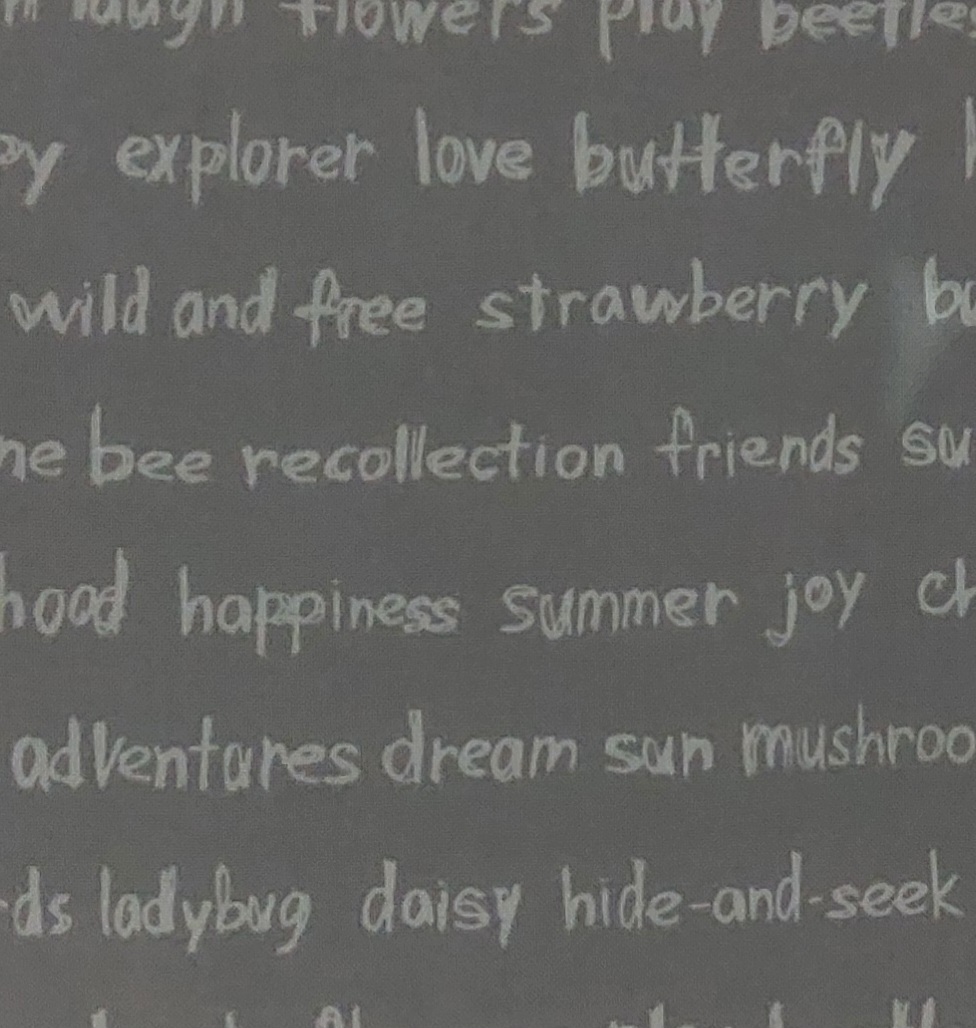 laugh flowers play beetles
py explorer love butterfly
wild and free strawberry bu
ne bee recollection friends su
hood happiness summer joy ch
adventures dream sun mushroo
ds ladybug daisy hide-and-seek